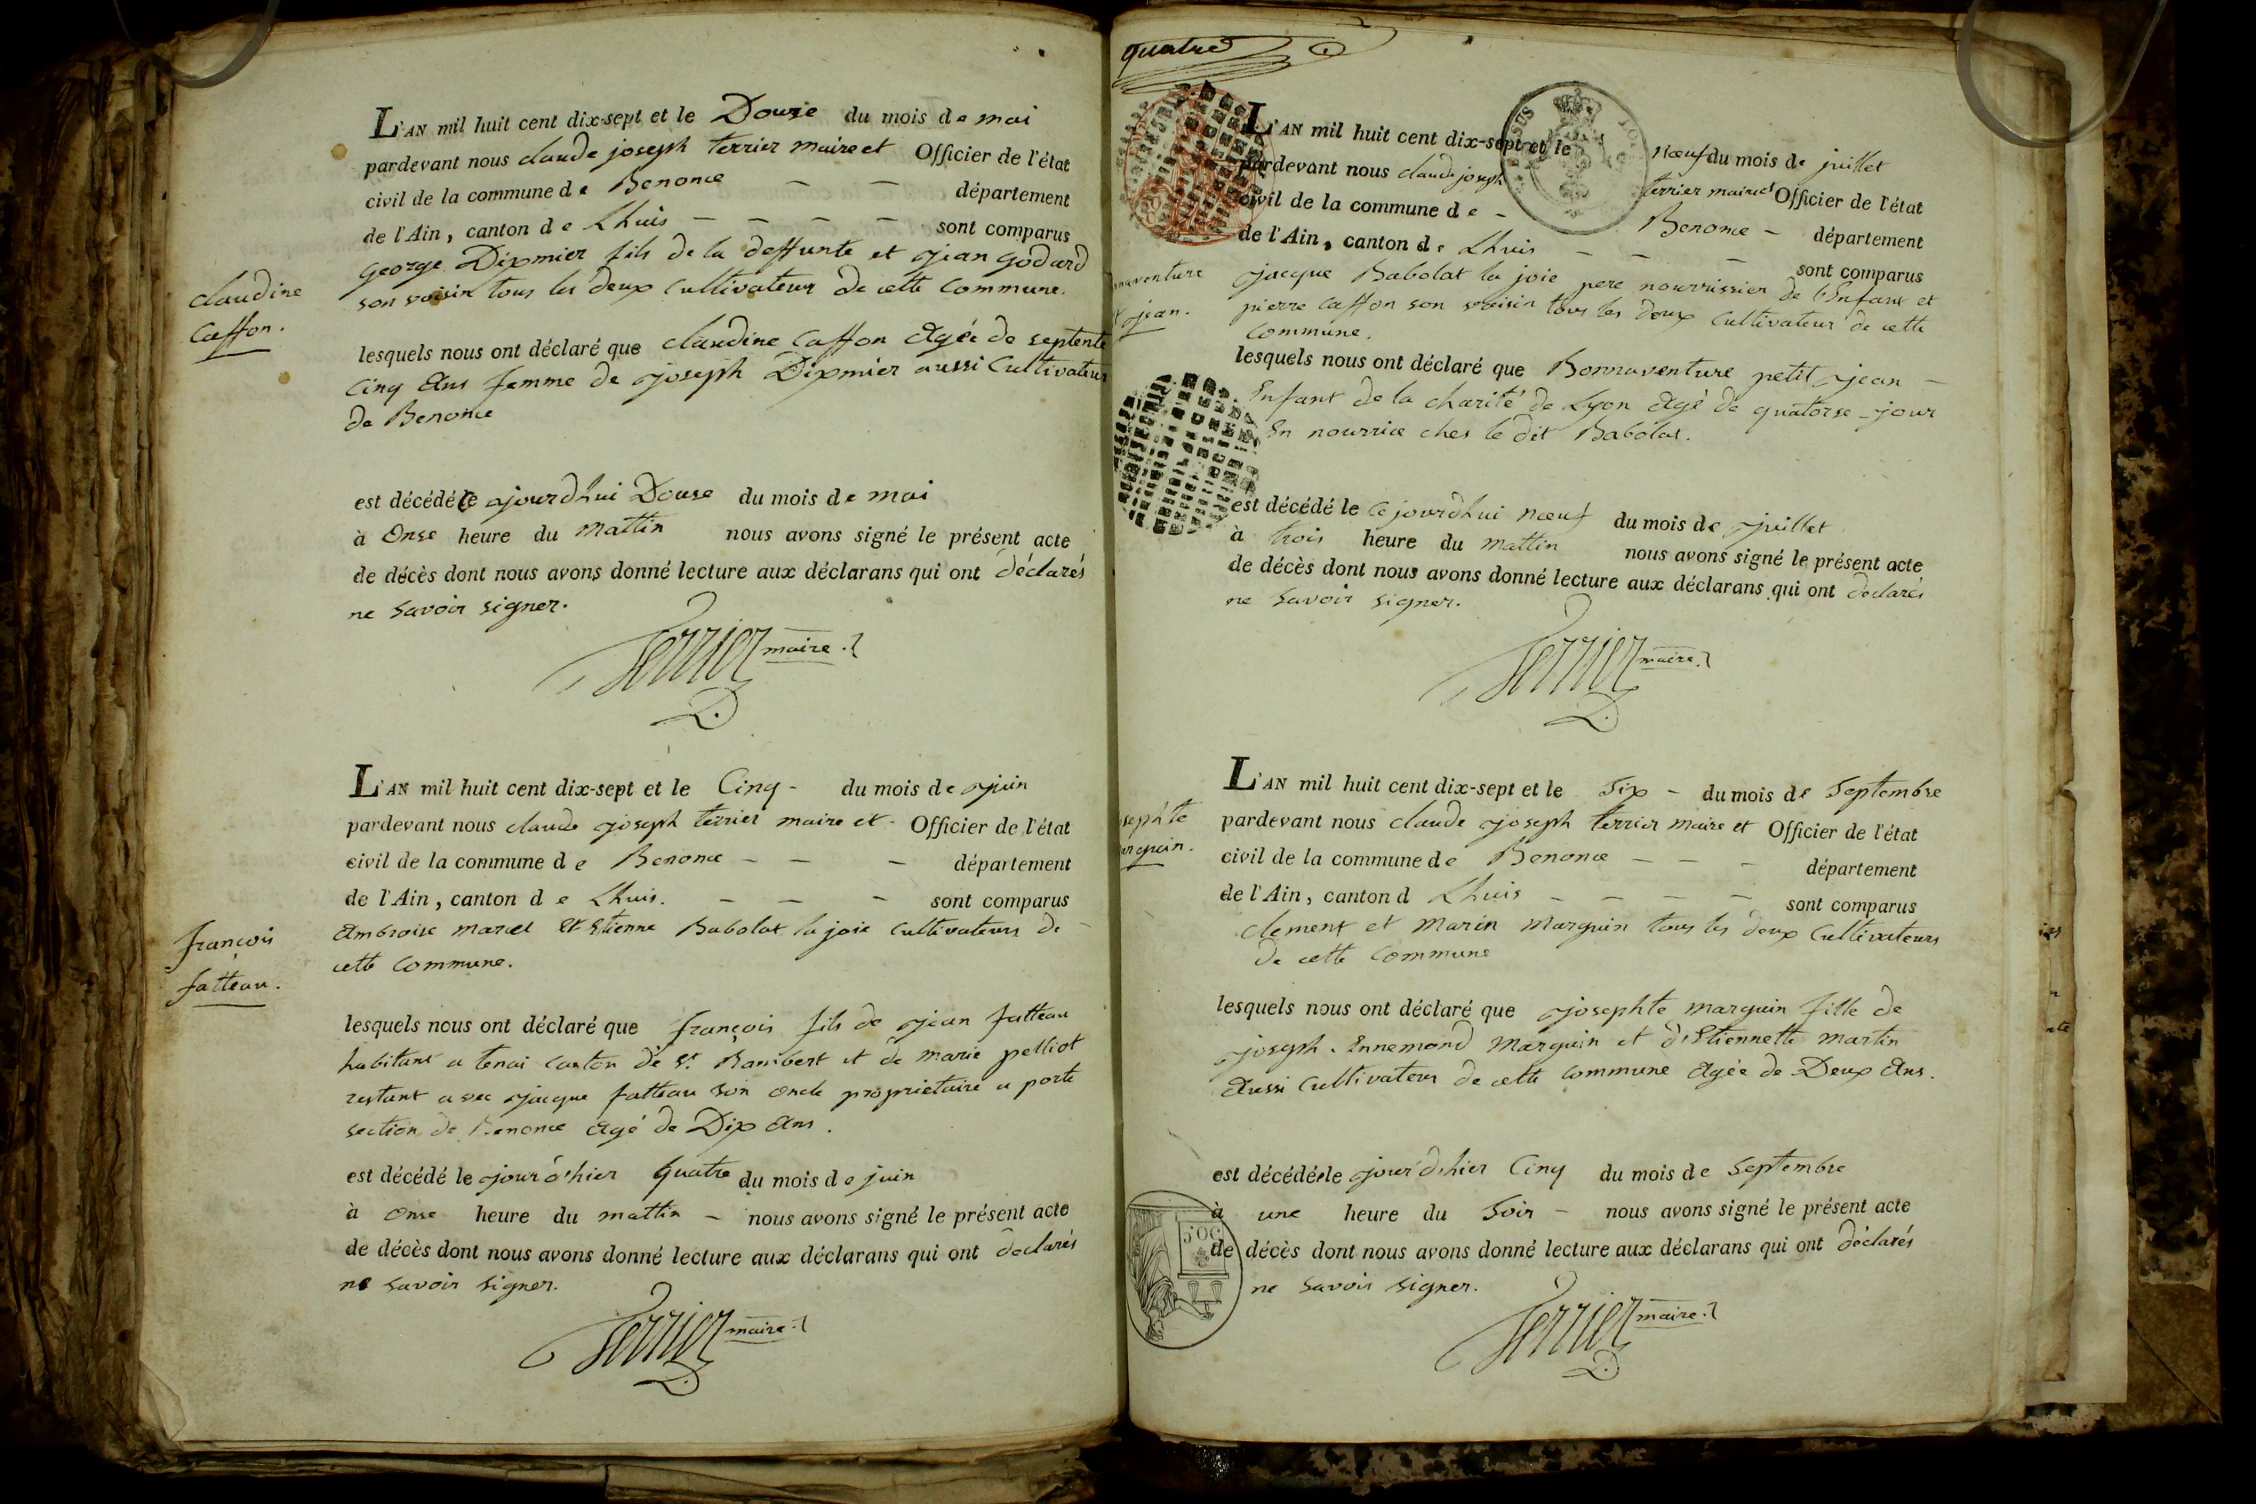 L'AN mil huit cent dix-sept et le Douze du mois de mai
pardevant nous claude joseph terrier maire et Officier de l'état
civil de la commune de Benonce — — département
de l'Ain, canton de Lhuis — — — — sont comparus
George Dixmier fils de la deffunte et jean Godard
son voisin tous les deux Cultivateur de cette Commune.
claudine
Caffon.
lesquels nous ont déclaré que claudine Caffon Agée de septente
Cinq Ans femme de joseph Dixmier aussi Cultivateur
de Benonce
est décédé le ajourdhui Douse du mois de mai
à Onse heure du mattin nous avons signé le présent acte
de décès dont nous avons donné lecture aux déclarans qui ont déclarés
ne savoir signer.
Terrier maire.
L'AN mil huit cent dix-sept et le Cinq - du mois de juin
pardevant nous claude joseph terrier maire et Officier de l'état
civil de la commune de Benonce — — — département
de l'Ain, canton de Lhuis. — — — sont comparus
Ambroise marcel Et Etienne Babolat la joie Cultivateurs de
cette Commune.
françois
fatteau.
lesquels nous ont déclaré que françois fils de jean fatteau
habitant a tenai canton de St. Rambert et de marie pelliot
restant avec jacque fatteau son oncle propriétaire a porte
section de Benonce Agé de Dix Ans.
est décédé le jour d'hier quatre du mois de juin
à onse heure du mattin — nous avons signé le présent acte
de décès dont nous avons donné lecture aux déclarans qui ont declarés
ne savoir signer.
Terrier maire.
quatre
L'AN mil huit cent dix-sept et le nœuf du mois de juillet
pardevant nous claude joseph terrier maire et Officier de l'état
civil de la commune de - Benonce - département
de l'Ain, canton de Lhuis — — — sont comparus
jacque Babolat la joie pere nourrissier de l'Enfant et
pierre Caffon son voisin tous les deux Cultivateur de cette
Commune.
naventure
jean.
lesquels nous ont déclaré que Bonnaventure petit jean —
Enfant de la charité de Lyon Agé de quatorse - jour
En nourrice ches le dit Babolat.
est décédé le Cejourdhui nœuf du mois de juillet
à trois heure du mattin nous avons signé le présent acte
de décès dont nous avons donné lecture aux déclarans qui ont declarés
ne savoir signer.
Terrier maire.
L'AN mil huit cent dix-sept et le Six - du mois de Septembre
pardevant nous claude joseph terrier maire et Officier de l'état
civil de la commune de Benonce — — — département
de l'Ain, canton d Lhuis — — — — sont comparus
clement et Marin Marguin tous les deux Cultivateurs
de cette Commune
sephte
rguin.
lesquels nous ont déclaré que josephte marguin fille de
joseph. Ennemond Marguin et d'Etiennette Martin
Aussi Cultivateur de cette Commune Agée de Deux Ans.
est décédée le jour d'hier Cinq du mois de Septembre
à une heure du Soir — nous avons signé le présent acte
de décès dont nous avons donné lecture aux déclarans qui ont déclarés
ne savoir signer.
50C
Terrier maire.